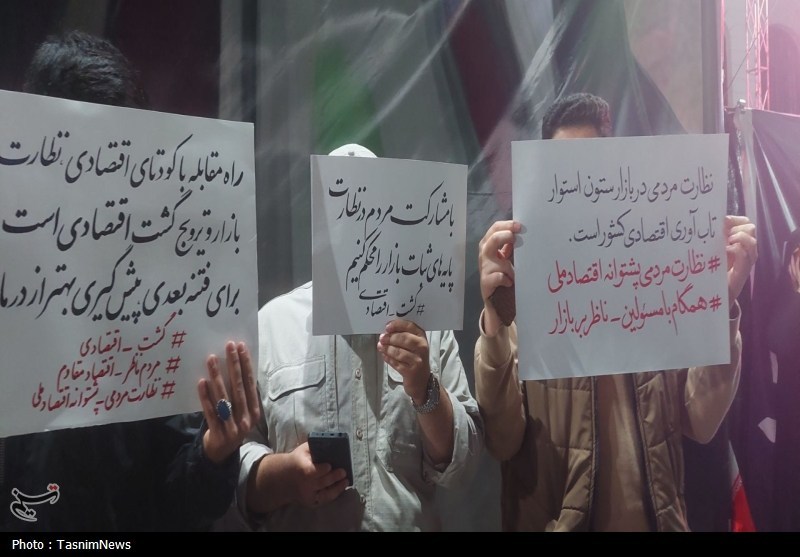 نظارت مردمی در بازار ستون استوار
تاب آوری اقتصادی کشور است.
#نظارت مردمی پشتوانه اقتصاد ملی
#همگام با مسئولین - ناظر بر بازار
با مشارکت مردم در نظارت
پایه‌های ثبات بازار را محکم کنیم
#گشت_اقتصادی
راه مقابله با کودتای اقتصادی، نظارت
بازار و ترویج گشت اقتصادی است
برای فتنه بعدی، پیش گیری بهتر از درما
#گشت_اقتصادی
#مردم ناظر_اقتصاد مقاوم
#نظارت مردمی_پشتوانه اقتصاد ملی
تسنیم
Photo : TasnimNews